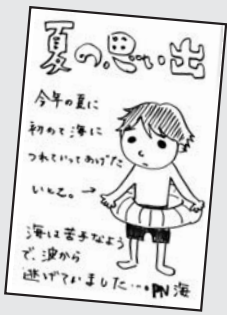 夏の思い出
今年の夏に
初めて海に
つれていってあげた
いとこ。→
海は苦手なよう
で、波から
逃げていました…。PN海